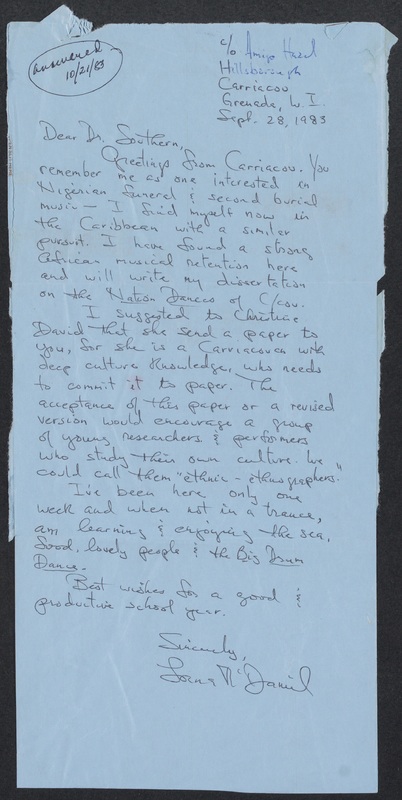 answered
10/21/83
c/o Amigo Hazel
Hillsborough
Carriacou
Grenada, W. I.
Sept. 28, 1983
Dear Dr. Southern,
Greetings from Carriacou. You
remember me as one interested in
Nigerian funeral & second burial
music - I find myself now in
the Caribbean with a similar
pursuit. I have found a strong
African musical retention here
and will write my dissertation
on the Nation Dances of C/cou.
I suggested to Christine
David that she send a paper to
you, for she is a Carriacouan with
deep culture knowledge, who needs
to commit it to paper. The
acceptance of this paper or a revised
version would encourage a group
of young researchers & performers
who study their own culture. We
could call them "ethnic-ethnographers."
I've been here only one
week and when not in a trance,
am learning & enjoying the sea,
food, lovely people & the Big Drum
Dance.
Best wishes for a good &
productive school year.
Sincerely,
Lorna McDaniel